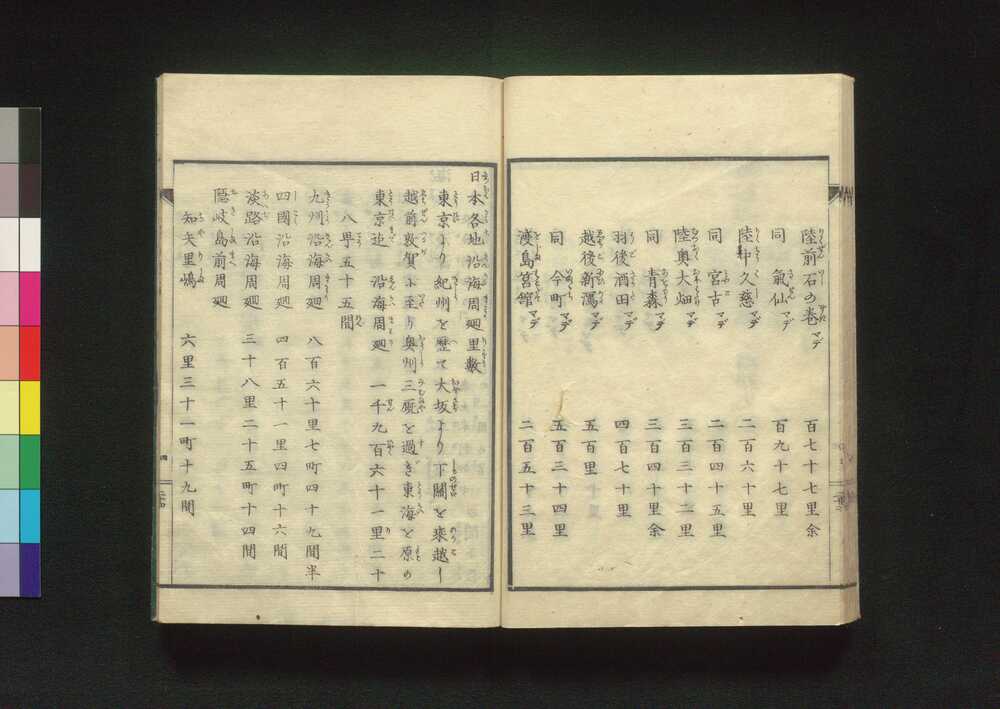 陸前石の巻マデ 百七十七里余
同 氣仙マデ 百九十七里
陸中久慈マデ 二百六十里
同 宮古マデ 二百四十五里
陸奥大畑マデ 三百三十二里
同 青森マデ 三百四十里余
羽後酒田マデ 四百七十里
越後新潟マデ 五百里
同 今町マデ 五百三十四里
渡島箱館マデ 二百五十三里
日本各地沿海周廻里數
東京より紀州を歴て大坂より下關を乘越し
越前敦賀に至り奥州三厩を過ぎ東海を原の
東京迄 沿海周廻 一千九百六十一里二十
八甼五十五間
九州沿海周廻 八百六十里七町四十九間半
四國沿海周廻 四百五十一里四町十六間
淡路沿海周廻 三十八里二十五町十四間
隱岐島前周廻
知夫里嶋 六里三十一町十九間